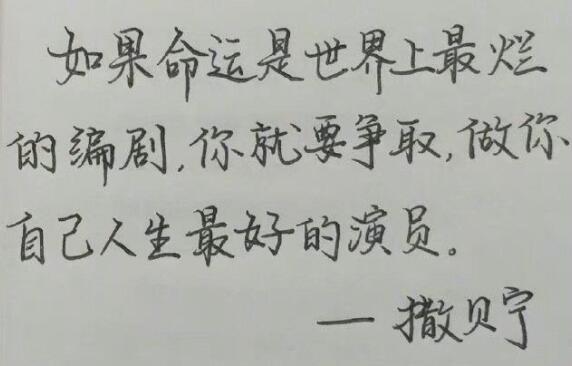 如果命运是世界上最烂
的编剧,你就要争取,做你
自己人生最好的演员。
— 撒贝宁